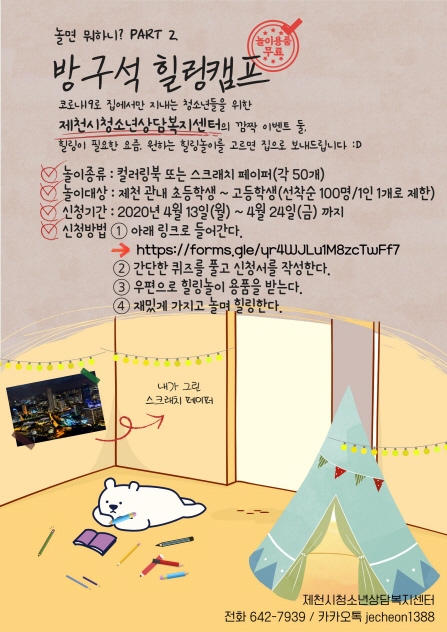 놀면 뭐하니? PART 2.
놀이용품
무료
방구석 힐링캠프
코로나19로 집에서만 지내는 청소년들을 위한
제천시청소년상담복지센터의 깜짝 이벤트 둘,
힐링이 필요한 요즘, 원하는 힐링놀이를 고르면 집으로 보내드립니다 :D
놀이종류 : 컬러링북 또는 스크래치 페이퍼(각 50개)
놀이대상 : 제천 관내 초등학생 ~ 고등학생(선착순 100명/1인 1개로 제한)
신청기간 : 2020년 4월 13일(월) ~ 4월 24일(금) 까지
신청방법 ① 아래 링크로 들어간다.
https://forms.gle/yr4WJLu1M8zcTwFf7
② 간단한 퀴즈를 풀고 신청서를 작성한다.
③ 우편으로 힐링놀이 용품을 받는다.
④ 재밌게 가지고 놀며 힐링한다.
내가 그린
스크래치 페이퍼
제천시청소년상담복지센터
전화 642-7939 / 카카오톡 jecheon1388